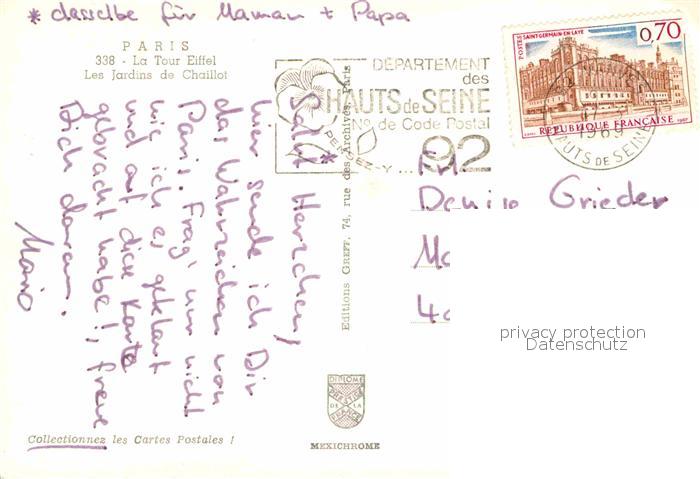 * dasselbe für Maman + Papa
PARIS
338 - La Tour Eiffel
Les Jardins de Chaillot
Salut * Herzchen,
hier sende ich Dir
das Wahrzeichen von
Paris. Frag' nur nicht
wie ich es geklaut
und auf die Karte
gebracht habe!, freue
Dich daran.
Mario
Collectionnez les Cartes Postales !
Editions GREFF, 74, rue des Archives, Paris
DIPLOME
PRESTIGE
DE LA
FRANCE
MEXICHROME
DÉPARTEMENT
des
HAUTS de SEINE
N° de Code Postal
92
RENDEZ-Y...
POSTES SAINT-GERMAIN-EN-LAYE
0,70
REPUBLIQUE FRANÇAISE
1967
1969
HAUTS DE SEINE
Frl.
Denise Grieder
privacy protection
Datenschutz